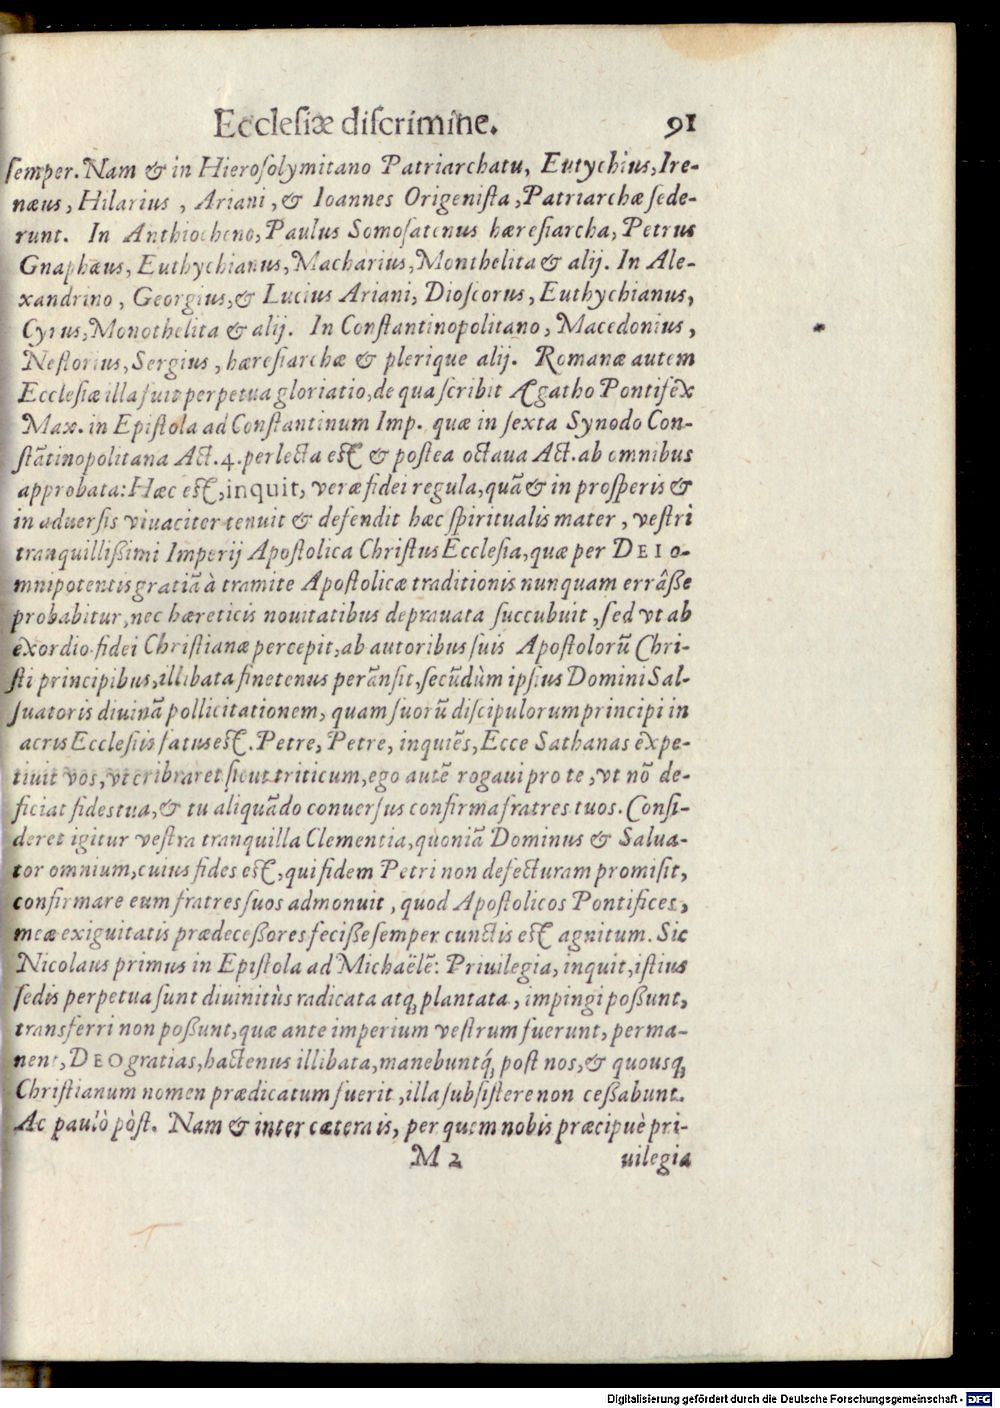 Ecclesiæ discrimine. 91
semper. Nam & in Hierosolymitano Patriarchatu, Eutychius, Ire-
næus, Hilarius, Ariani, & Ioannes Origenista, Patriarchæ sede-
runt. In Anthiocheno, Paulus Somosatenus hæresiarcha, Petrus
Gnaphæus, Euthychianus, Macharius, Monthelita & alij. In Ale-
xandrino, Georgius, & Lucius Ariani, Dioscorus, Euthychianus,
Cyrus, Monothelita & alij. In Constantinopolitano, Macedonius,
Nestorius, Sergius, hæresiarchæ & plerique alij. Romanæ autem
Ecclesiæ illa fuit perpetua gloriatio, de qua scribit Ægatho Pontifex
Max. in Epistola ad Constantinum Imp. quæ in sexta Synodo Con-
stātinopolitana Act. 4. perlecta est & postea octaua Act. ab omnibus
approbata: Hæc est, inquit, veræ fidei regula, quā & in prosperis &
in aduersis viuaciter tenuit & defendit hæc spiritualis mater, vestri
tranquillißimi Imperij Apostolica Christus Ecclesia, quæ per DEI o-
mnipotentis gratiā à tramite Apostolicæ traditionis nunquam errâße
probabitur, nec hæreticis nouitatibus deprauata succubuit, sed vt ab
exordio fidei Christianæ percepit, ab autoribus suis Apostolorū Chri-
sti principibus, illibata finetenus perānsit, secūdùm ipsius Domini Sal-
uatoris diuinā pollicitationem, quam suorū discipulorum principi in
acris Ecclesiis fatus est. Petre, Petre, inquiēs, Ecce Sathanas expe-
tiuit vos, vt cribraret sicut triticum, ego autē rogaui pro te, vt nō de-
ficiat fides tua, & tu aliquādo conuersus confirma fratres tuos. Consi-
deret igitur vestra tranquilla Clementia, quoniā Dominus & Salua-
tor omnium, cuius fides est, qui fidem Petri non defecturam promisit,
confirmare eum fratres suos admonuit, quod Apostolicos Pontifices,
meæ exiguitatis prædeceßores feciße semper cunctis est agnitum. Sic
Nicolaus primus in Epistola ad Michaëlē: Priuilegia, inquit, istius
sedis perpetua sunt diuinitùs radicata atq; plantata, impingi poßunt,
transferri non poßunt, quæ ante imperium vestrum fuerunt, perma-
nent, DEO gratias, hactenus illibata, manebuntq́; post nos, & quousq;
Christianum nomen prædicatum fuerit, illa subsistere non ceßabunt.
Ac paulò pòst. Nam & inter cætera is, per quem nobis præcipuè pri-
M 2 uilegia
Digitalisierung gefördert durch die Deutsche Forschungsgemeinschaft - DFG